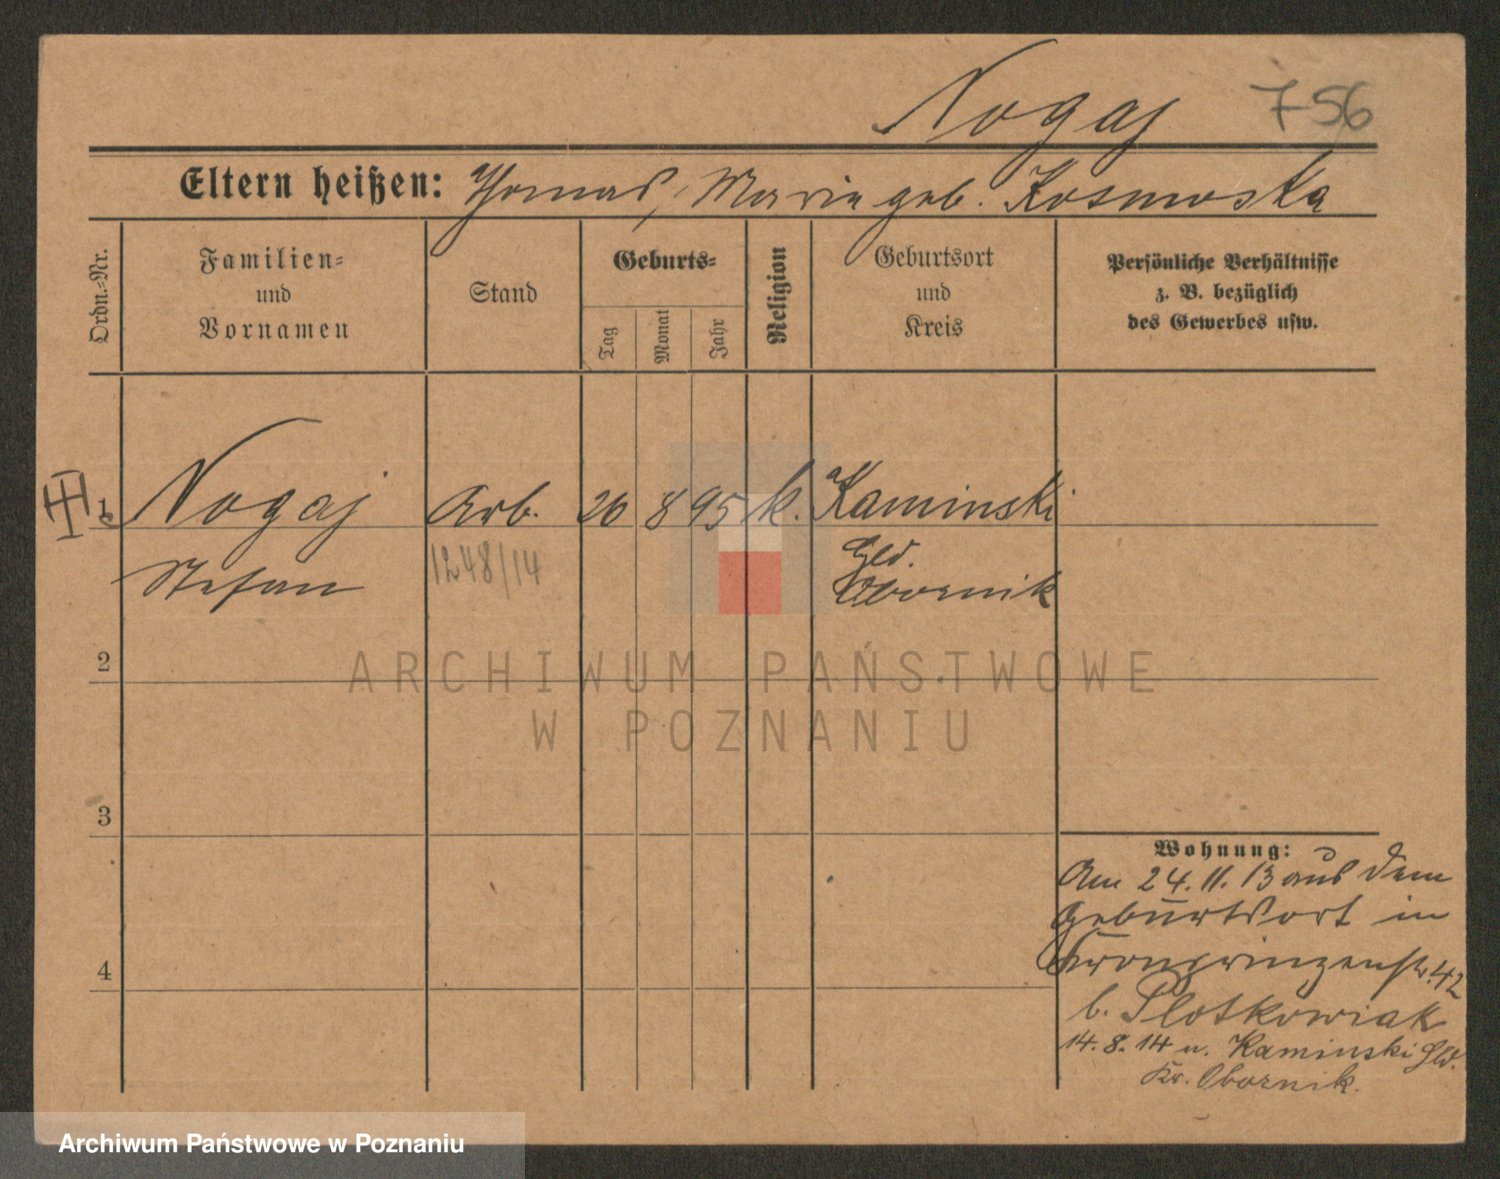 Nogaj 756
Eltern heißen: Thomas, Marie geb. Kosmoska
Ordn.-Nr.
Familien-
und
Vornamen
Stand
Geburts-
Tag
Monat
Jahr
Religion
Geburtsort
und
Kreis
Persönliche Verhältnisse
z. B. bezüglich
des Gewerbes usw.
1 Nogaj Arb. 26 8 95 k. Kaminski
Gld.
Stefan 1248/14 Obornik
2
3
4
Wohnung:
Am 24.11.13 aus dem
Geburtsort in
Kronprinzenstr. 42
b. Plotkowiak
14.8.14 n. Kaminski Gld.
Kr. Obornik.
ARCHIWUM PAŃSTWOWE
W POZNANIU
Archiwum Państwowe w Poznaniu